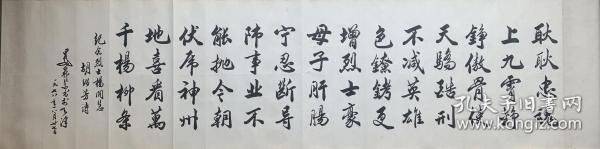 耿耿忠魂
上九霄铮
铮傲骨侯
天骄酷刑
不减英雄
色镣铐更
增烈士豪
母子肝肠
宁忍断导
师事业不
能抛今朝
伏虎神州
地喜看万
千杨柳条
纪念烈士杨闇公
胡治芳诗
孔夫子旧书网